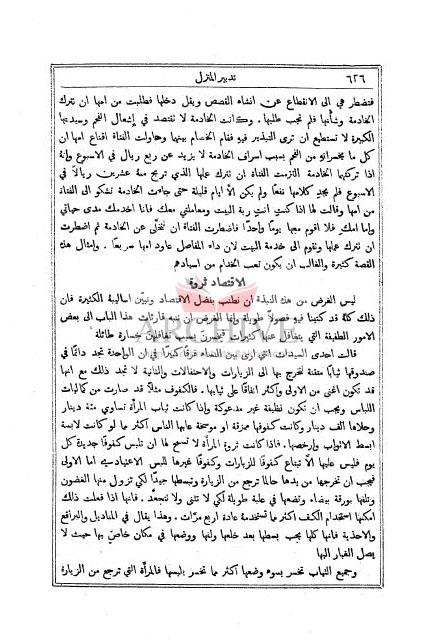 ٦٢٦
تدبير المنزل
فتضطر هي الى الانقطاع عن انشاء القصص ويقل دخلها فطلبت من امها ان تترك
الخادمة وشأنها فلم تجب طلبها. وكانت الخادمة لا تقتصد في إشعال الفحم وسيدتها
الكبيرة لا تستطيع ان ترى التبذير فيه فقام الخصام بينهما وحاولت الفتاة اقناع امها ان
كل ما يخسرانه من الفحم بسبب اسراف الخادمة لا يزيد عن ربع ريال في الاسبوع وانه
اذا تركتها الخادمة التزمت الفتاة ان تترك عملها الذي تربح منه عشرين ريالاً في
الاسبوع فلم يجدِ كلامها نفعاً ولم يكن الاّ ايام قليلة حتى جاءت الخادمة تشكو الى الفتاة
من امها وقالت لها اذا كنتِ انتِ ربة البيت ومعاملتي معك فانا اخدمك مدى حياتي
واما امك فلا اقوم معها يوماً واحداً فاضطرت الفتاة ان تتخلى عن الخادمة ثم اضطرت
ان تترك عملها وتقوم الى خدمة البيت لان داء المفاصل عاود امها سريعاً. وامثال هذه
القصة كثيرة والغالب ان يكون تعب الخدام من اسيادهم
الاقتصاد ثروة
ليس الغرض من هذه النبذة ان نطنب بفضل الاقتصاد ونبيّن اساليبهُ الكثيرة فان
ذلك كلهُ قد كتبنا فيهِ فصولاً طويلة وانما الغرض ان ننبه قارئات هذا الباب الى بعض
الامور الطفيفة التي يتغافل عنها كثيرات فيخسرن بسبب تغافلهن خسارة طائلة
قالت احدى السيدات انني ارى بين النساء فرقاً كبيراً في ان الواحدة تجد دائماً في
صندوقها ثياباً متقنة لتخرج بها الى الزيارات والاحتفالات والثانية لا تجد ذلك مع انها
قد تكون اغنى من الاولى واكثر انفاقاً على ثيابها. فالكفوف مثلاً قد صارت من كماليات
اللباس ويجب ان تكون نظيفة غير مدعوكة واذا كانت ثياب المرأة تساوي مئة دينار
وحلاها الف دينار وكانت كفوفها ممزقة او موسخة عابها الناس اكثر مما لو كانت لابسة
ابسط الاثواب وارخصها. فاذا كانت ثروة المرأة لا تسمح لها ان تلبس كفوفاً جديدة كل
يوم فليس عليها الاّ ان تبتاع كفوفاً للزيارات وكفوفاً غيرها للبس الاعتيادي اما الاولى
فيجب ان تخرجها من يدها حالما ترجع من الزيارة وتبسطها جيداً لكي تزول منها الغضون
وتلفها بورقة بيضاء وتضعها في علبة طويلة لكي لا تنثني ولا تتجعد. فانها اذا فعلت ذلك
امكنها استخدام الكف اكثر مما تستخدمهُ عادة اربع مرات. وهذا يقال في المناديل والبراقع
والاحذية فانها كلها يجب بسطها بعد خلعها ولفها ووضعها في مكان خاص بها حيث لا
يصل الغبار اليها
وجميع الثياب تخسر بسوء وضعها اكثر مما تخسر بلبسها فالمرأة التي ترجع من الزيارة
ARCHIVE